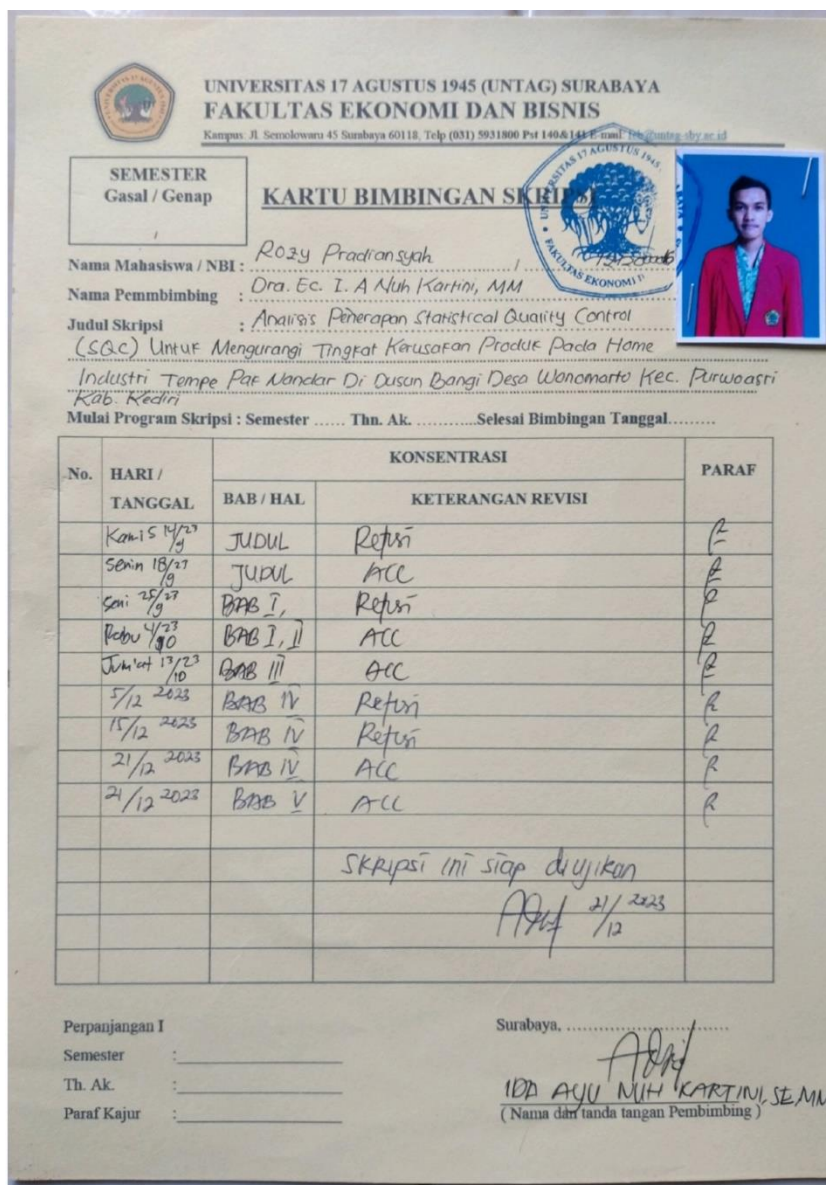 UNIVERSITAS 17 AGUSTUS 1945 (UNTAG) SURABAYA
FAKULTAS EKONOMI DAN BISNIS
Kampus: Jl. Semolowaru 45 Surabaya 60118, Telp (031) 5931800 Pst 140&141 E-mail: feb@untag-sby.ac.id
SEMESTER
Gasal / Genap
/
KARTU BIMBINGAN SKRIPSI
UNIVERSITAS 17 AGUSTUS 1945
FAKULTAS EKONOMI
Nama Mahasiswa / NBI : Rozy Pradiansyah /
Nama Pemmbimbing : Dra. Ec. I. A Nuh Kartini, MM
Judul Skripsi : Analisis Penerapan Statistical Quality Control
(SQC) Untuk Mengurangi Tingkat Kerusakan Produk Pada Home
Industri Tempe Pak Nandar Di Dusun Bangi Desa Wonomarto Kec. Purwoasri
Kab. Kediri
Mulai Program Skripsi : Semester ...... Thn. Ak. ...........Selesai Bimbingan Tanggal.........
No. HARI / TANGGAL KONSENTRASI PARAF
BAB / HAL KETERANGAN REVISI
Kamis 14/9 23 JUDUL Refisi
Senin 18/9 23 JUDUL ACC
Seni 25/9 23 BAB I, Refisi
Rabu 4/10 23 BAB I, II ACC
Jum'at 13/10 23 BAB III ACC
5/12 2023 BAB IV Refisi
15/12 2023 BAB IV Refisi
21/12 2023 BAB IV ACC
21/12 2023 BAB V ACC
Skripsi ini siap diujikan
21/12 2023
Perpanjangan I
Semester :
Th. Ak. :
Paraf Kajur :
Surabaya, ..............................
IDA AYU NUH KARTINI, SE, MM
( Nama dan tanda tangan Pembimbing )